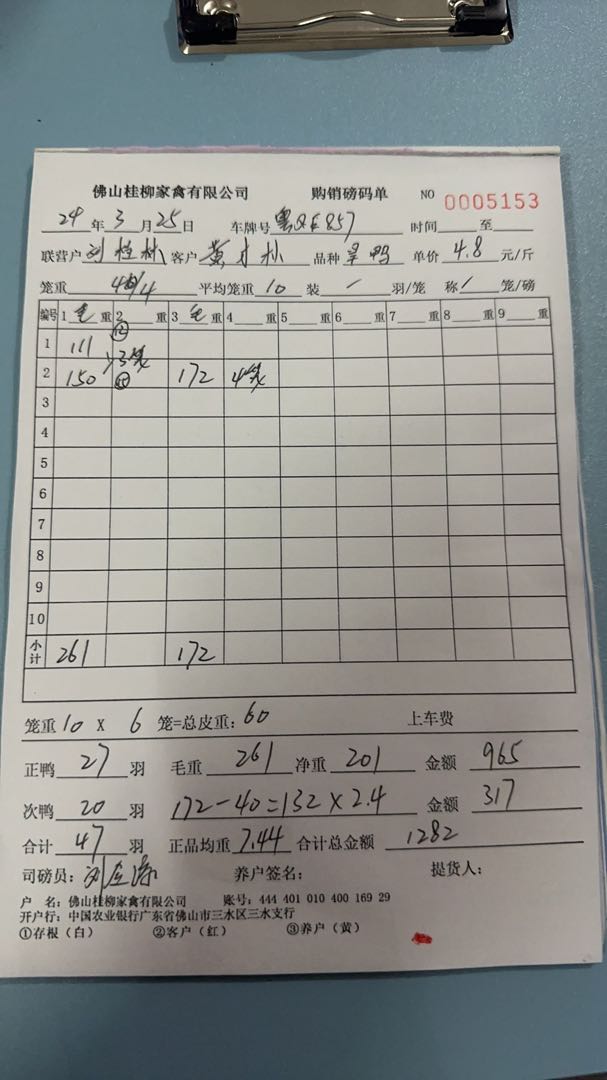 佛山桂柳家禽有限公司 购销磅码单 NO 0005153
24 年 3 月 25 日 车牌号 粤 E857 时间 至
联营户 刘桂林 客户 黄才林 品种 旱鸭 单价 4.8 元/斤
笼重 40/4 平均笼重 10 装 / 羽/笼 称 / 笼/磅
编号 1 毛 重 2 重 3 毛 重 4 重 5 重 6 重 7 重 8 重 9 重
1 111
3笼
2 150 172 4笼
3
4
5
6
7
8
9
10
小计 261 172
笼重 10 X 6 笼=总皮重: 60 上车费
正鸭 27 羽 毛重 261 净重 201 金额 965
次鸭 20 羽 172-40=132×2.4 金额 317
合计 47 羽 正品均重 7.44 合计总金额 1282
司磅员: 刘 养户签名: 提货人:
户 名: 佛山桂柳家禽有限公司 账号: 444 401 010 400 169 29
开户行: 中国农业银行广东省佛山市三水区三水支行
①存根（白） ②客户（红） ③养户（黄）